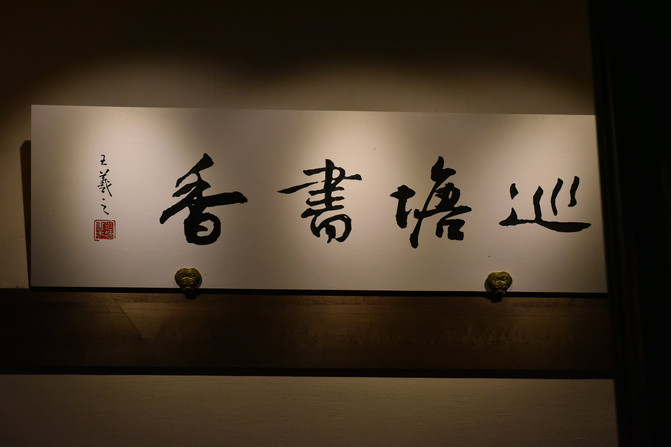 巡塘書香
王羲之